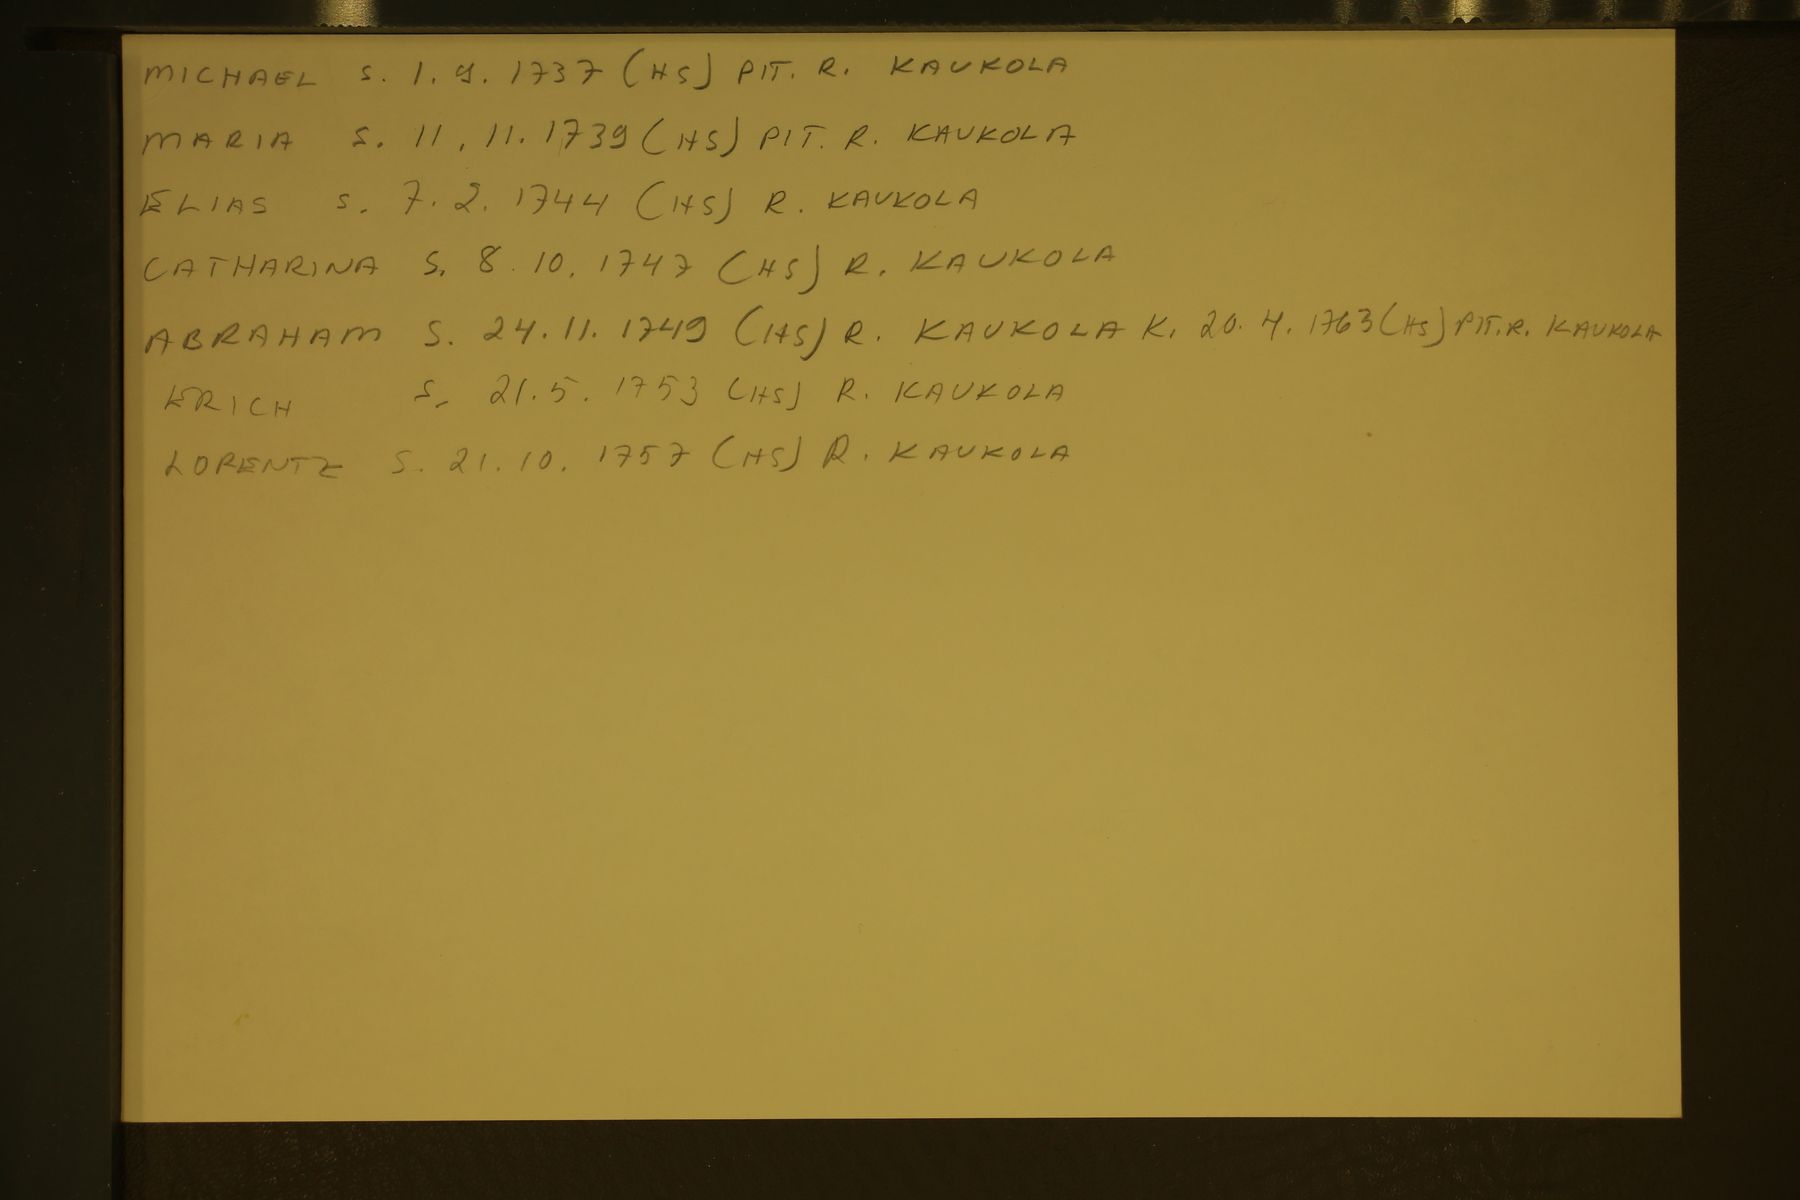 MICHAEL S. 1.9.1737 (HS) PIT. R. KAUKOLA
MARIA S. 11.11.1739 (HS) PIT. R. KAUKOLA
ELIAS S. 7.2.1744 (HS) R. KAUKOLA
CATHARINA S. 8.10.1747 (HS) R. KAUKOLA
ABRAHAM S. 24.11.1749 (HS) R. KAUKOLA K. 20.4.1763 (HS) PIT.R. KAUKOLA
ERICH S. 21.5.1753 (HS) R. KAUKOLA
LORENTZ S. 21.10.1757 (HS) R. KAUKOLA